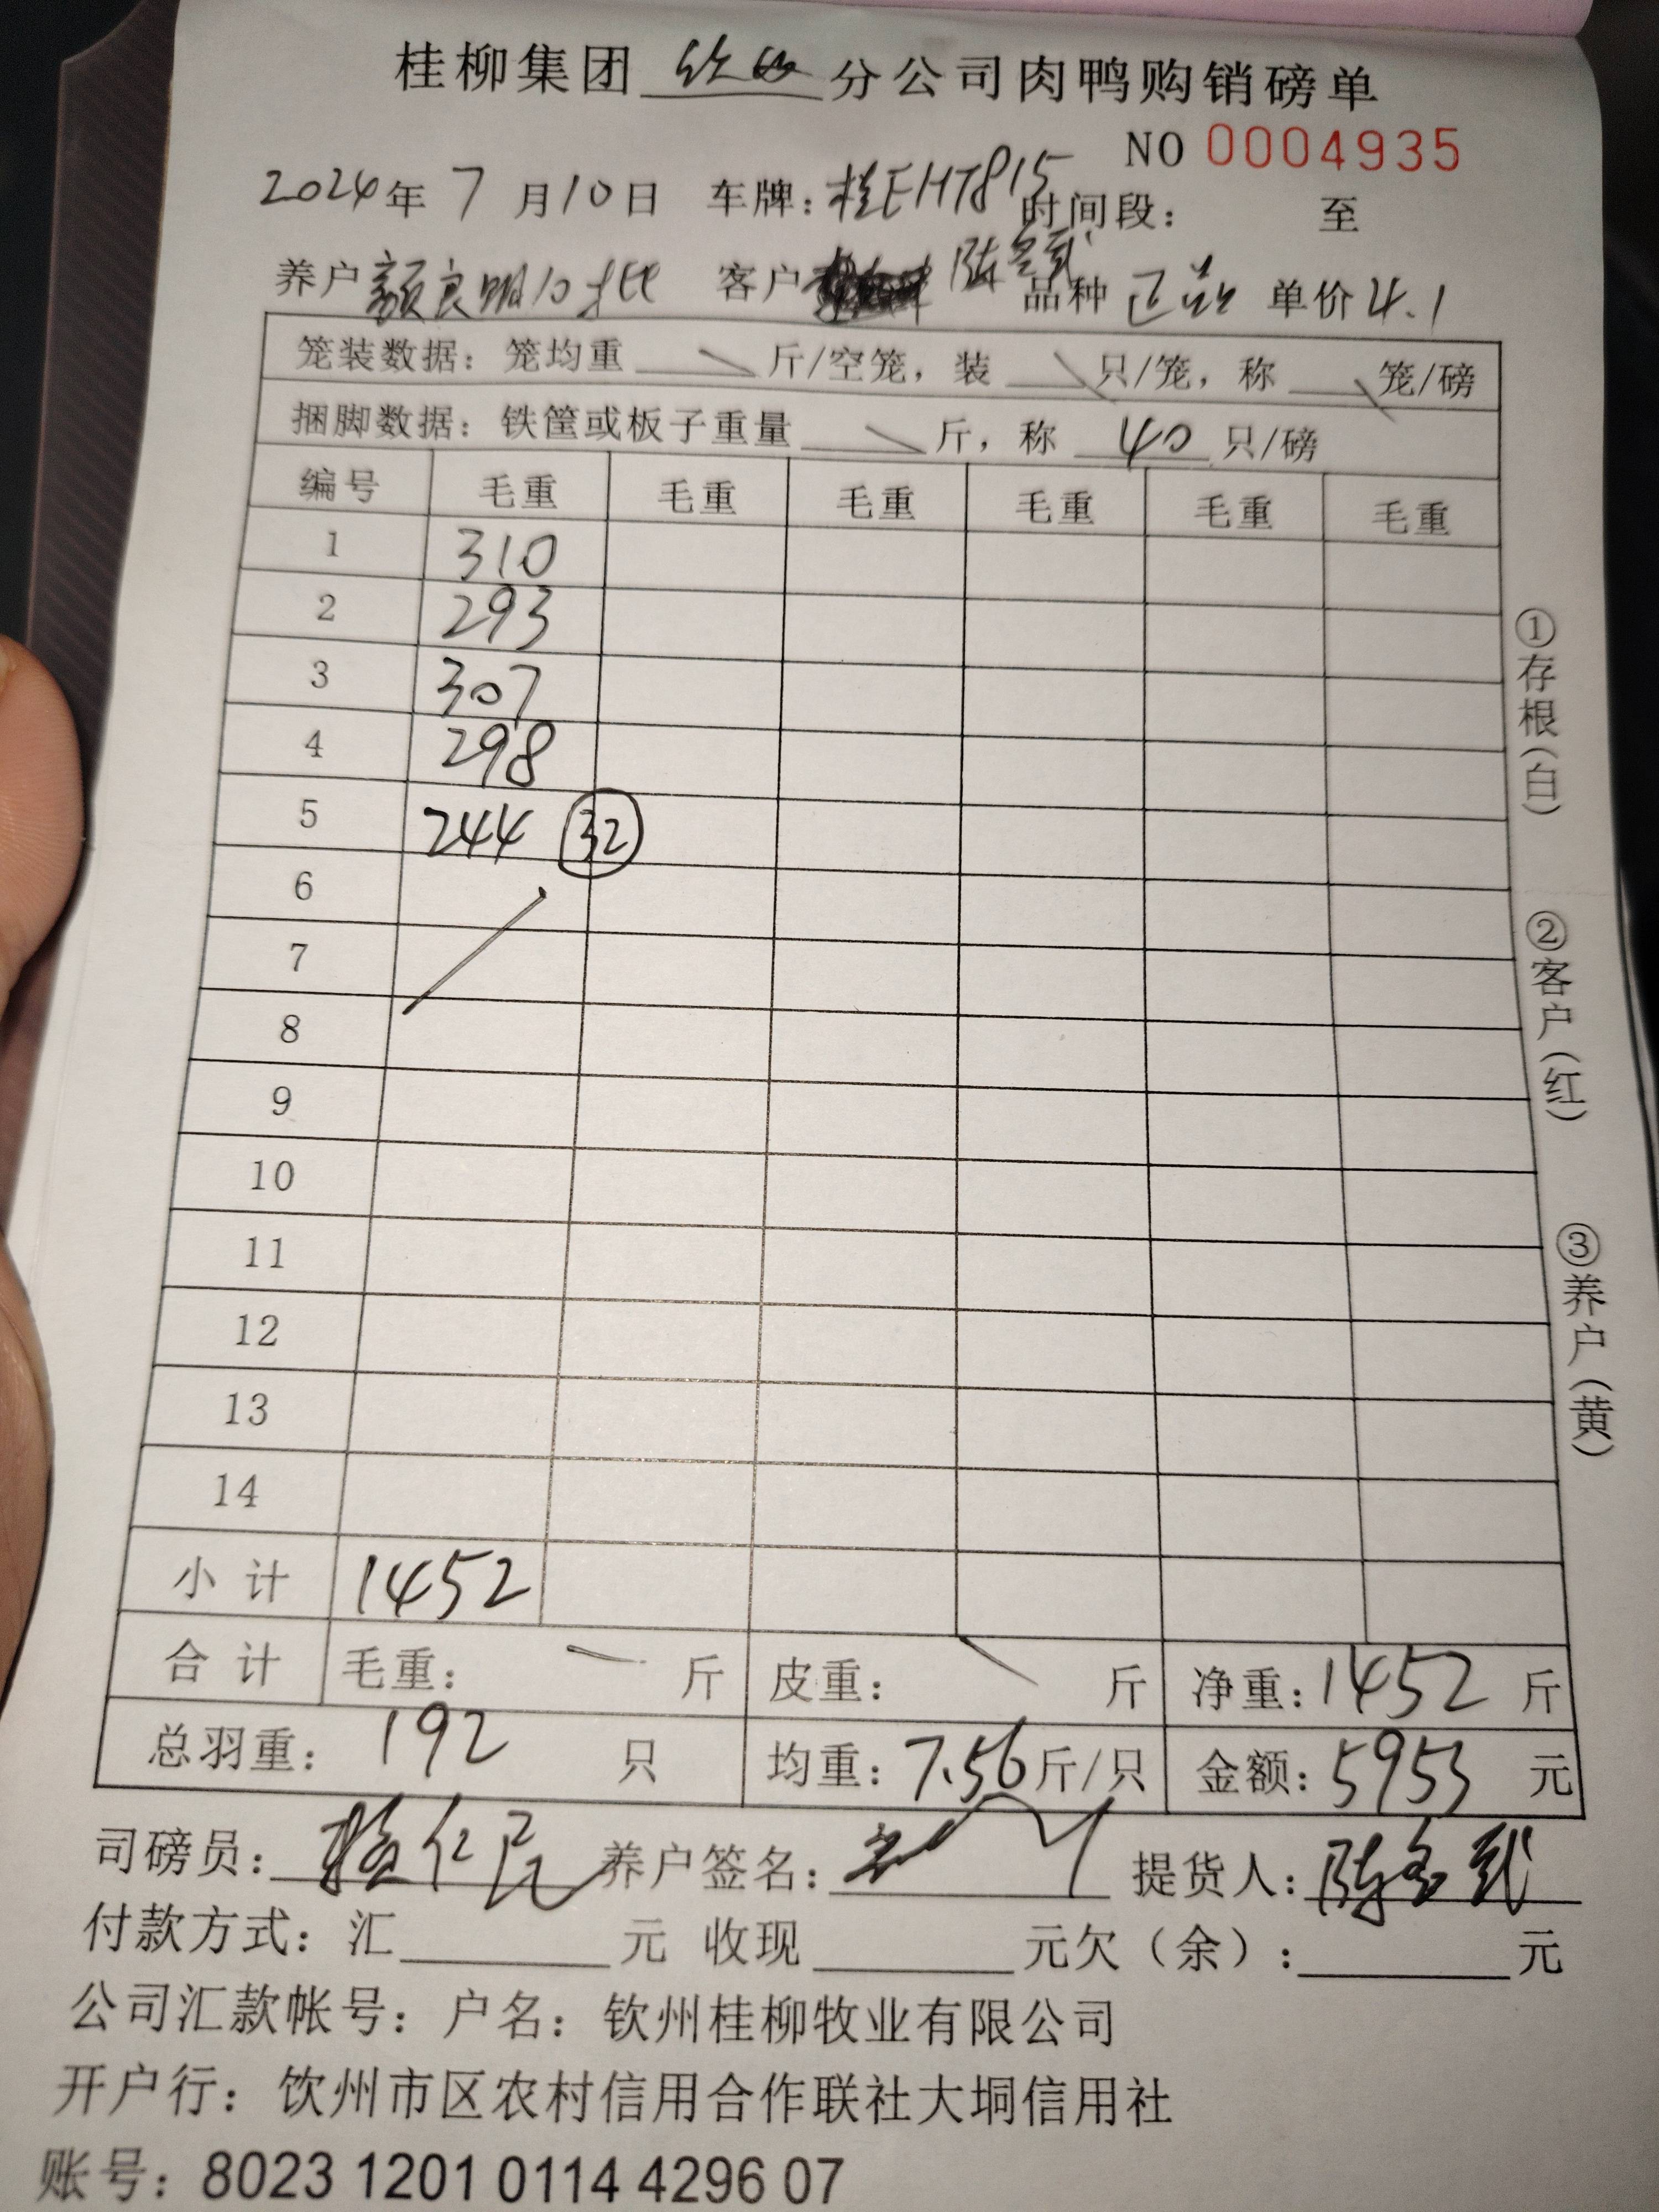 桂柳集团 钦州 分公司肉鸭购销磅单
NO 0004935
2024年 7 月10日 车牌：桂EHT815 时间段： 至
养户 颜良明10批 客户 陈 品种 正品 单价4.1
笼装数据：笼均重 斤/空笼，装 只/笼，称 笼/磅
捆脚数据：铁筐或板子重量 斤，称 40 只/磅
编号 毛重 毛重 毛重 毛重 毛重 毛重
1 310
2 293
3 307
4 298
5 244 32
6
7
8
9
10
11
12
13
14
小计 1452
合计 毛重： 斤 皮重： 斤 净重：1452 斤
总羽重： 192 只 均重：7.56斤/只 金额：5953 元
司磅员： 仁民 养户签名： 提货人：陈
付款方式：汇 元 收现 元欠（余）： 元
公司汇款帐号：户名：钦州桂柳牧业有限公司
开户行：饮州市区农村信用合作联社大垌信用社
账号：8023 1201 0114 4296 07
①存根（白）
②客户（红）
③养户（黄）